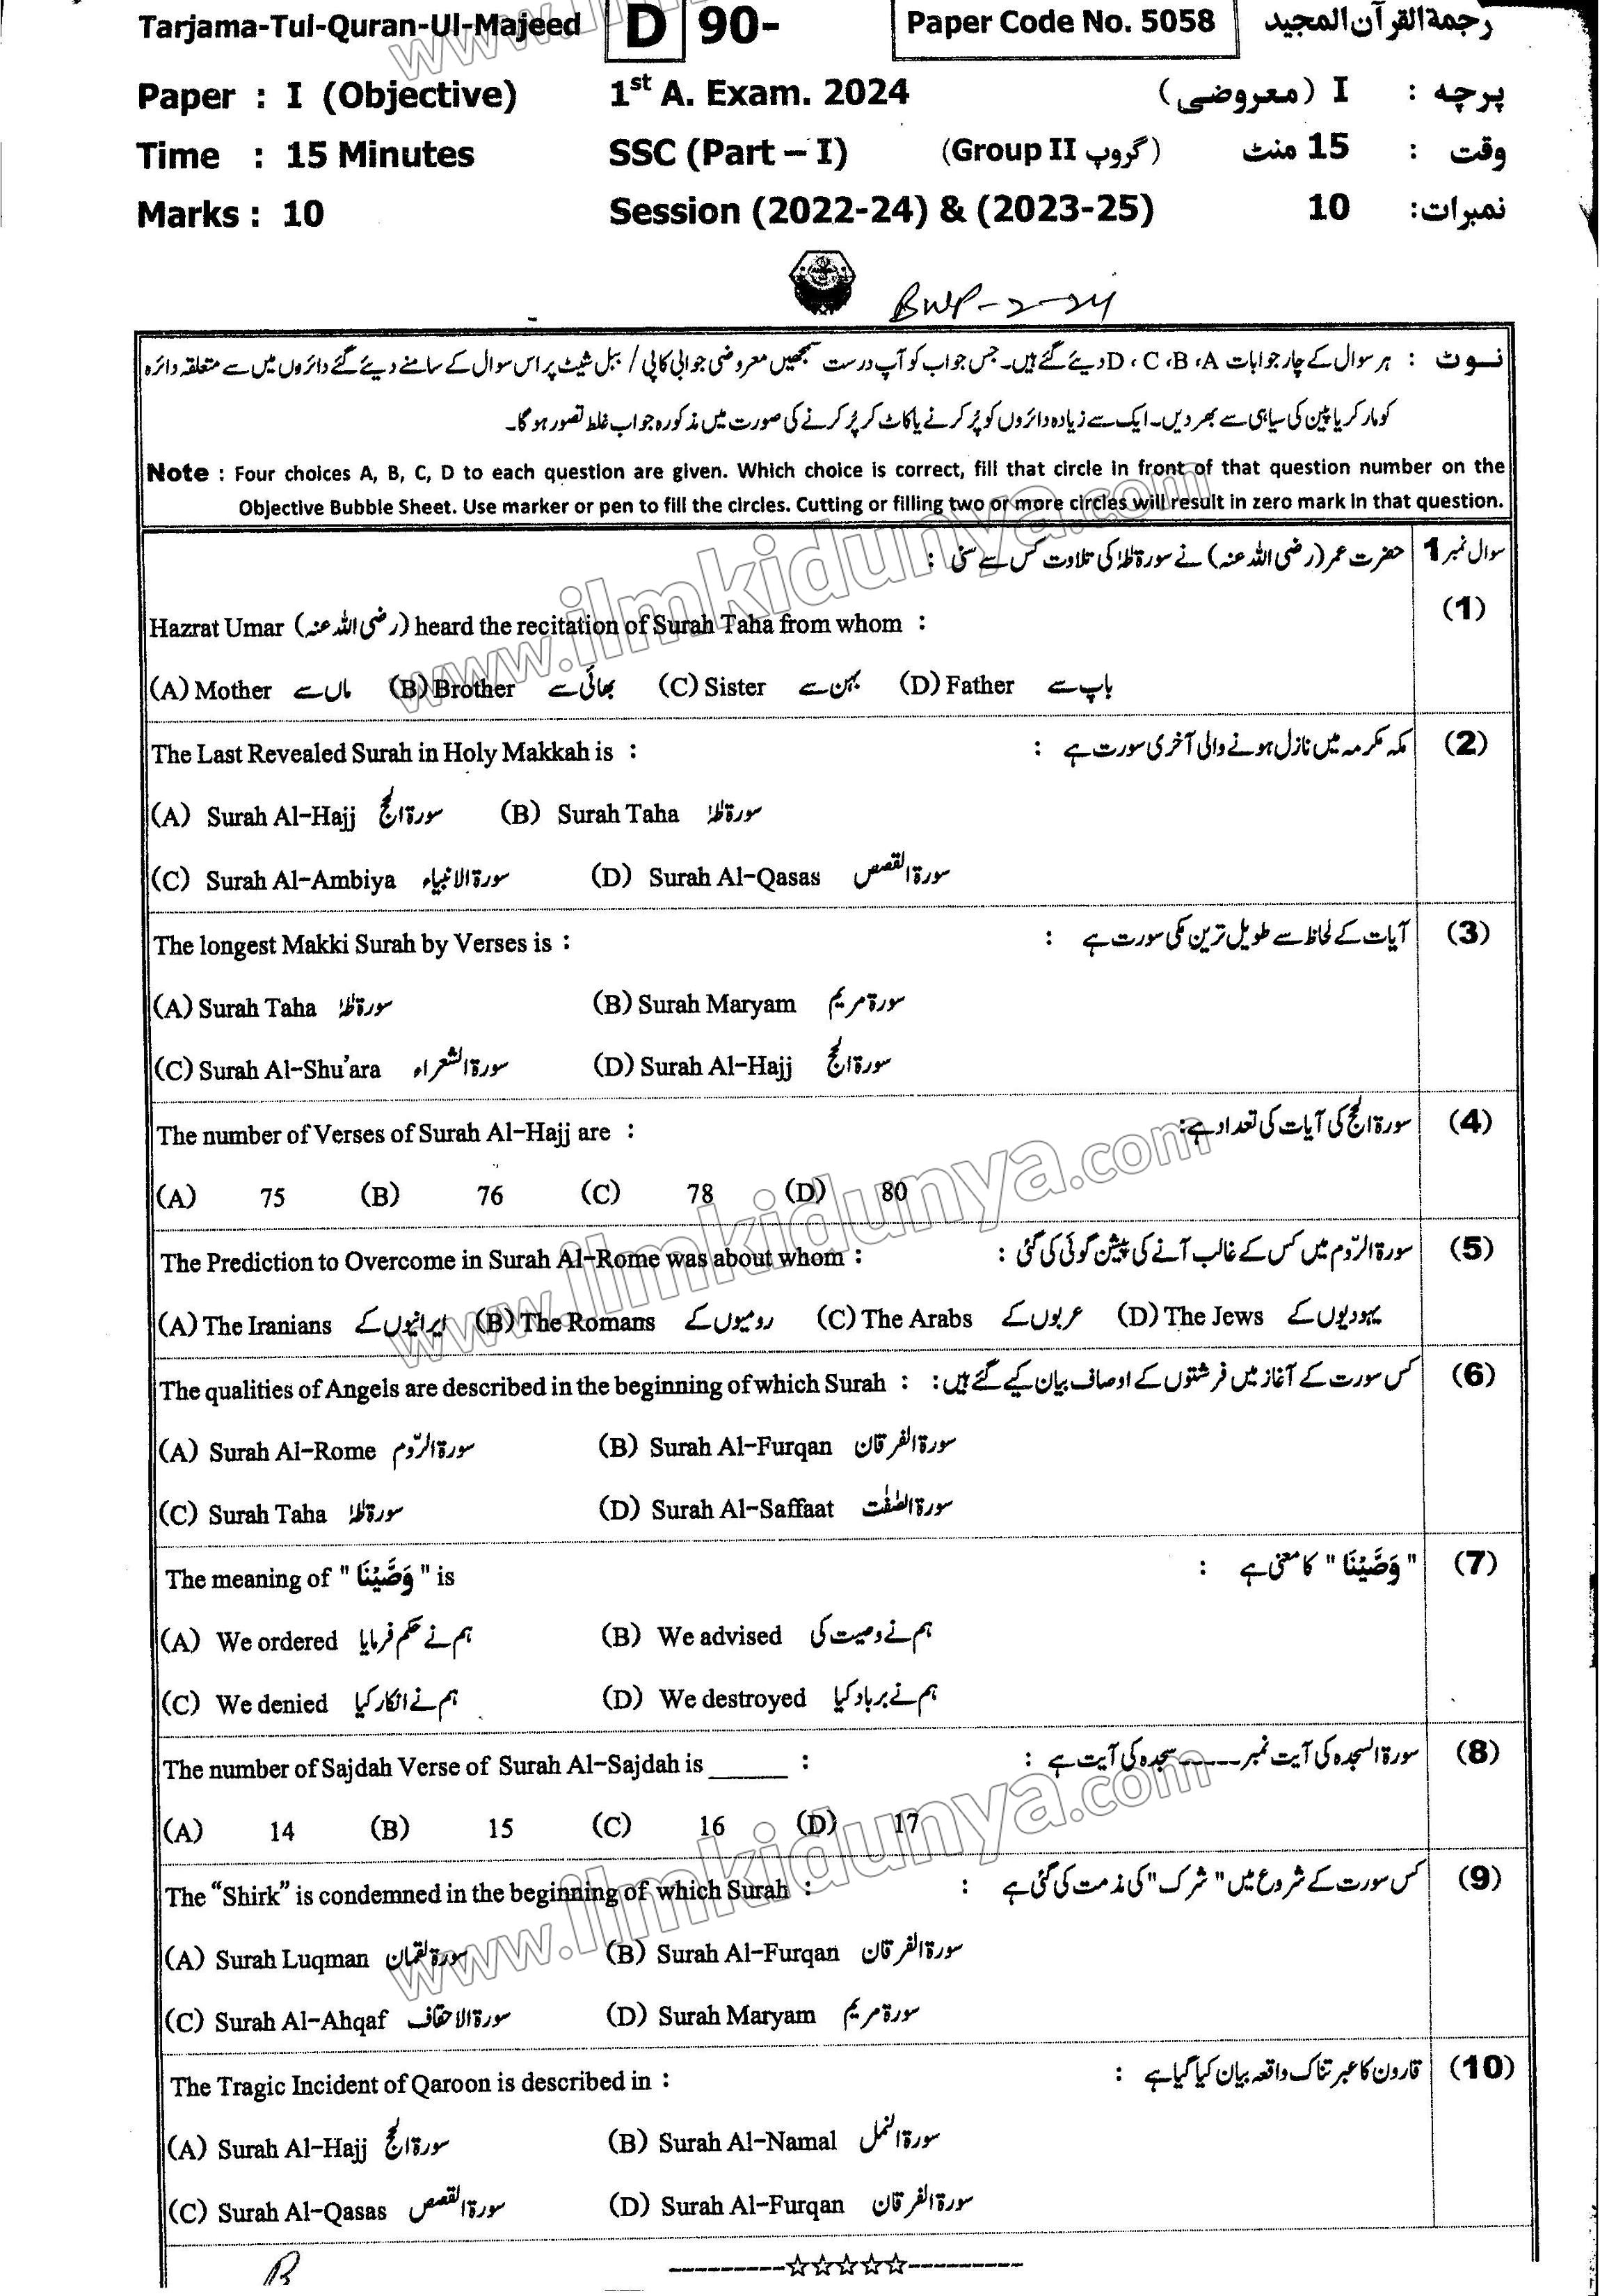 Tarjama-Tul-Quran-Ul-Majeed D 90- Paper Code No. 5058 رجمۃالقرآن المجید
Paper : I (Objective) 1st A. Exam. 2024 پرچہ : I (معروضی)
Time : 15 Minutes SSC (Part – I) (Group II گروپ) وقت : 15 منٹ
Marks : 10 Session (2022-24) & (2023-25) نمبرات: 10
BWP-2-24
نوٹ : ہر سوال کے چار جوابات A، B، C، D دیئے گئے ہیں۔ جس جواب کو آپ درست سمجھیں معروضی جوابی کاپی / ببل شیٹ پر اس سوال کے سامنے دیئے گئے دائروں میں سے متعلقہ دائرہ
کو مارکر یا پین کی سیاہی سے بھر دیں۔ ایک سے زیادہ دائروں کو پُر کرنے یا کاٹ کر پُر کرنے کی صورت میں مذکورہ جواب غلط تصور ہوگا۔
Note : Four choices A, B, C, D to each question are given. Which choice is correct, fill that circle in front of that question number on the
Objective Bubble Sheet. Use marker or pen to fill the circles. Cutting or filling two or more circles will result in zero mark in that question.
سوال نمبر 1 حضرت عمر (رضی اللہ عنہ) نے سورۃ طٰہٰ کی تلاوت کس سے سنی :
(1)
Hazrat Umar (رضی اللہ عنہ) heard the recitation of Surah Taha from whom :
(A) Mother ماں سے (B) Brother بھائی سے (C) Sister بہن سے (D) Father باپ سے
The Last Revealed Surah in Holy Makkah is : مکہ مکرمہ میں نازل ہونے والی آخری سورت ہے : (2)
(A) Surah Al-Hajj سورۃ الحج (B) Surah Taha سورۃ طٰہٰ
(C) Surah Al-Ambiya سورۃ الانبیاء (D) Surah Al-Qasas سورۃ القصص
The longest Makki Surah by Verses is : آیات کے لحاظ سے طویل ترین مکی سورت ہے : (3)
(A) Surah Taha سورۃ طٰہٰ (B) Surah Maryam سورۃ مریم
(C) Surah Al-Shu'ara سورۃ الشعراء (D) Surah Al-Hajj سورۃ الحج
The number of Verses of Surah Al-Hajj are : سورۃ الحج کی آیات کی تعداد ہے: (4)
(A) 75 (B) 76 (C) 78 (D) 80
The Prediction to Overcome in Surah Al-Rome was about whom : سورۃ الرّوم میں کس کے غالب آنے کی پیشن گوئی کی گئی : (5)
(A) The Iranians ایرانیوں کے (B) The Romans رومیوں کے (C) The Arabs عربوں کے (D) The Jews یہودیوں کے
The qualities of Angels are described in the beginning of which Surah : کس سورت کے آغاز میں فرشتوں کے اوصاف بیان کیے گئے ہیں: (6)
(A) Surah Al-Rome سورۃ الرّوم (B) Surah Al-Furqan سورۃ الفرقان
(C) Surah Taha سورۃ طٰہٰ (D) Surah Al-Saffaat سورۃ الصّٰفّٰت
The meaning of " وَصَّيْنَا " is " وَصَّيْنَا " کا معنی ہے : (7)
(A) We ordered ہم نے حکم فرمایا (B) We advised ہم نے وصیت کی
(C) We denied ہم نے انکار کیا (D) We destroyed ہم نے برباد کیا
The number of Sajdah Verse of Surah Al-Sajdah is ______ : سورۃ السجدہ کی آیت نمبر ----- سجدہ کی آیت ہے : (8)
(A) 14 (B) 15 (C) 16 (D) 17
The “Shirk” is condemned in the beginning of which Surah : کس سورت کے شروع میں "شرک" کی مذمت کی گئی ہے : (9)
(A) Surah Luqman سورۃ لقمان (B) Surah Al-Furqan سورۃ الفرقان
(C) Surah Al-Ahqaf سورۃ الاحقاف (D) Surah Maryam سورۃ مریم
The Tragic Incident of Qaroon is described in : قارون کا عبرتناک واقعہ بیان کیا گیا ہے : (10)
(A) Surah Al-Hajj سورۃ الحج (B) Surah Al-Namal سورۃ النمل
(C) Surah Al-Qasas سورۃ القصص (D) Surah Al-Furqan سورۃ الفرقان
www.ilmkidunya.com
www.ilmkidunya.com
www.ilmkidunya.com